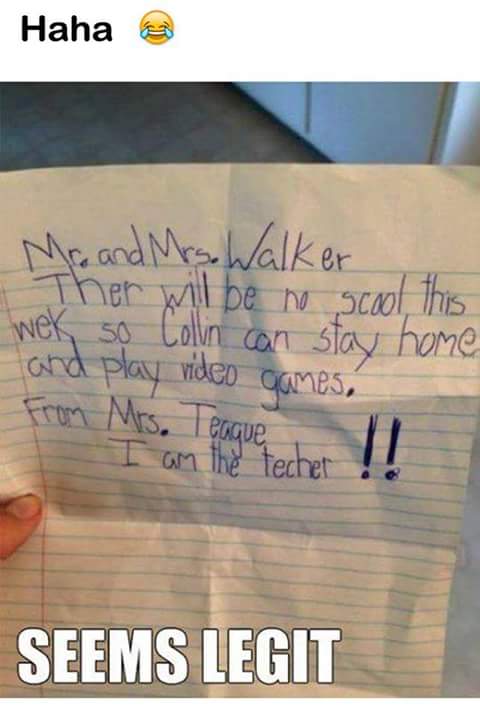 Haha 😂
Mr. and Mrs. Walker
Ther will be no scool this
wek so Collin can stay home
and play video games.
From Mrs. Teague
I am the techer !!
SEEMS LEGIT